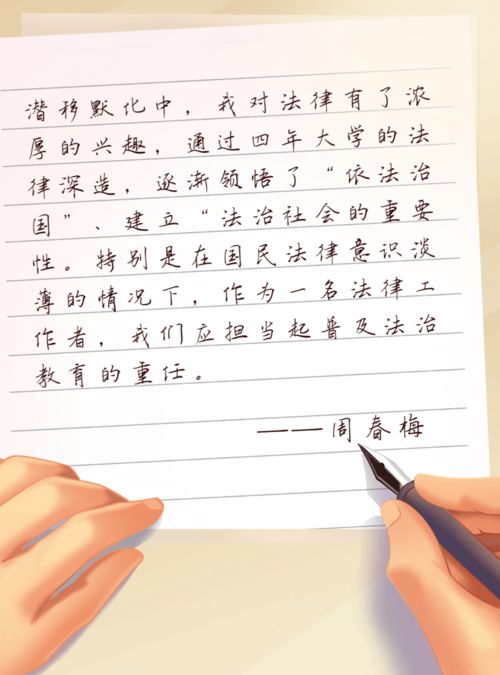 潜移默化中，我对法律有了浓
厚的兴趣，通过四年大学的法
律深造，逐渐领悟了“依法治
国”、建立“法治社会的重要
性。特别是在国民法律意识淡
薄的情况下，作为一名法律工
作者，我们应担当起普及法治
教育的重任。
——周春梅